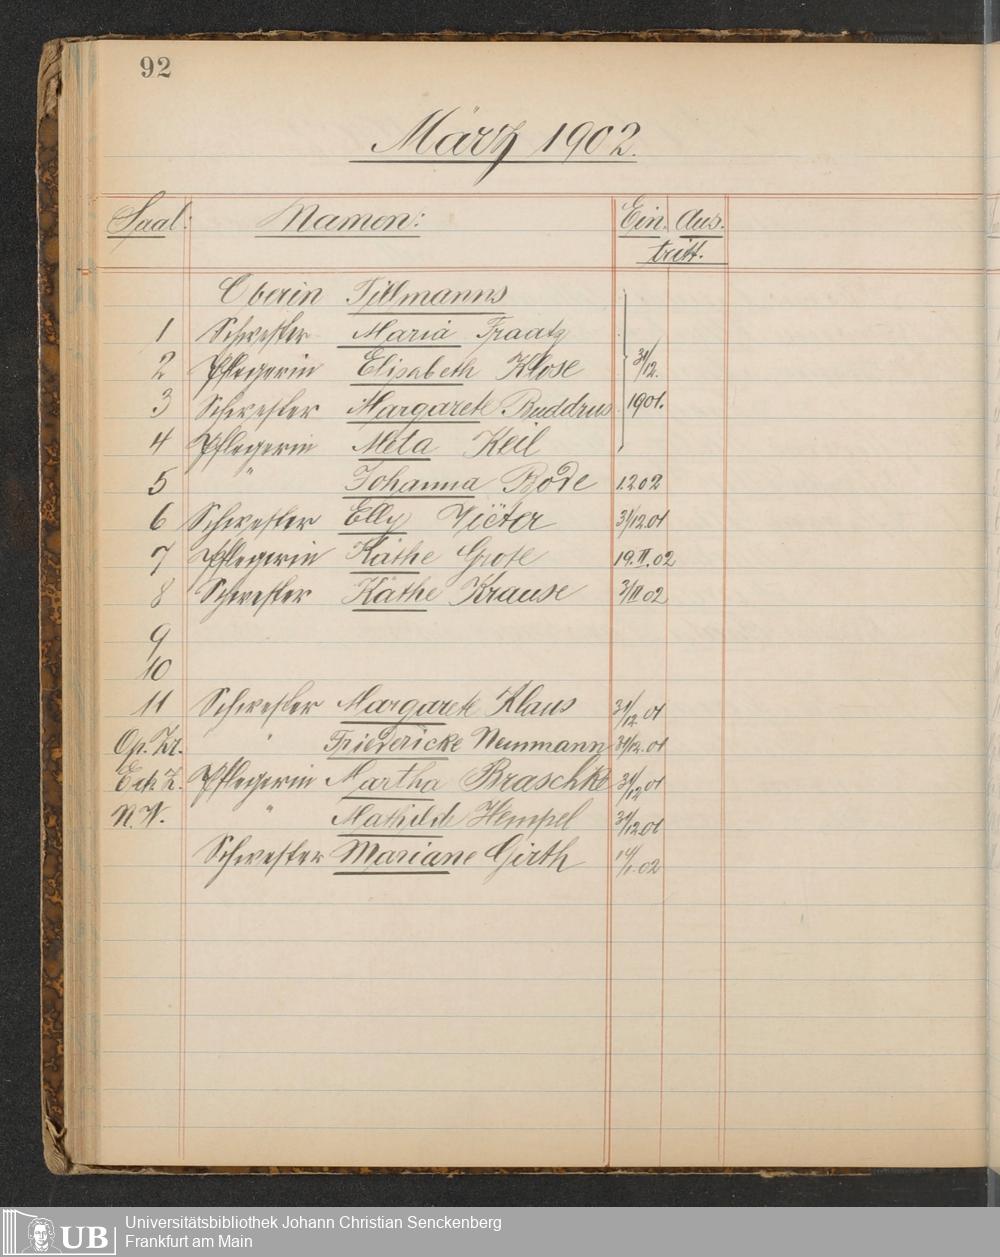 92
März 1902.
Saal: Namen: Ein. Aus.
tritt.
Oberin Tillmanns
1 Schwester Maria Traatz
2 Pflegerin Elisabeth Klose 31/12.
3 Schwester Margarete Buddrus 1901.
4 Pflegerin Meta Keil
5 " Johanna Bode 1.2 02
6 Schwester Elly Viëtor 31/12.01
7 Pflegerin Käthe Grote 19.II.02
8 Schwester Käthe Krause 3/II 02
9
10
11 Schwester Margarete Klaus 31/12 01
Op. Zr. " Friedericke Neumann 31/12.01
Eck Z. Pflegerin Martha Braschke 31/12 01
N.W. " Mathilde Hempel 31/12.01
Schwester Mariane Girth 14/1.02
UB Universitätsbibliothek Johann Christian Senckenberg
Frankfurt am Main